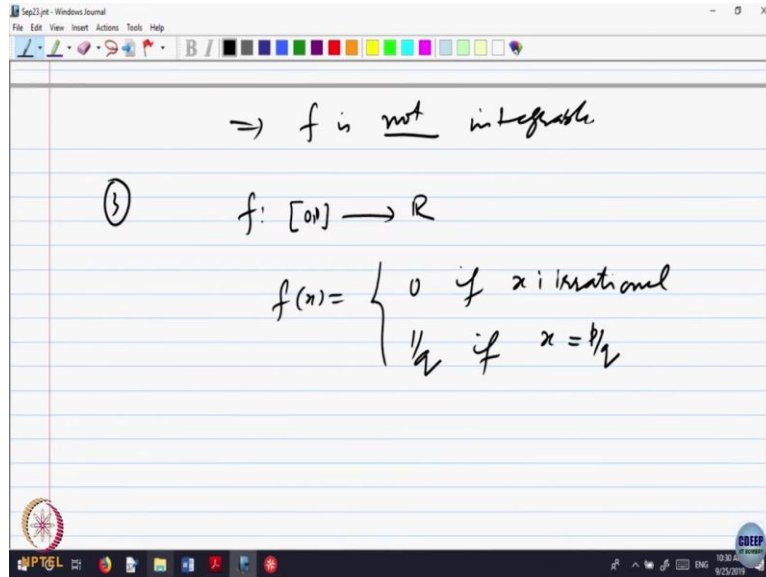 Sep23.jnt - Windows Journal
File Edit View Insert Actions Tools Help
B I
⇒ f is not integrable
③ f: [0,1] → R
f(x) = { 0 if x is irrational
1/q if x = p/q
NPTEL
CDEEP
IIT BOMBAY
ENG
10:30 A
9/25/2019